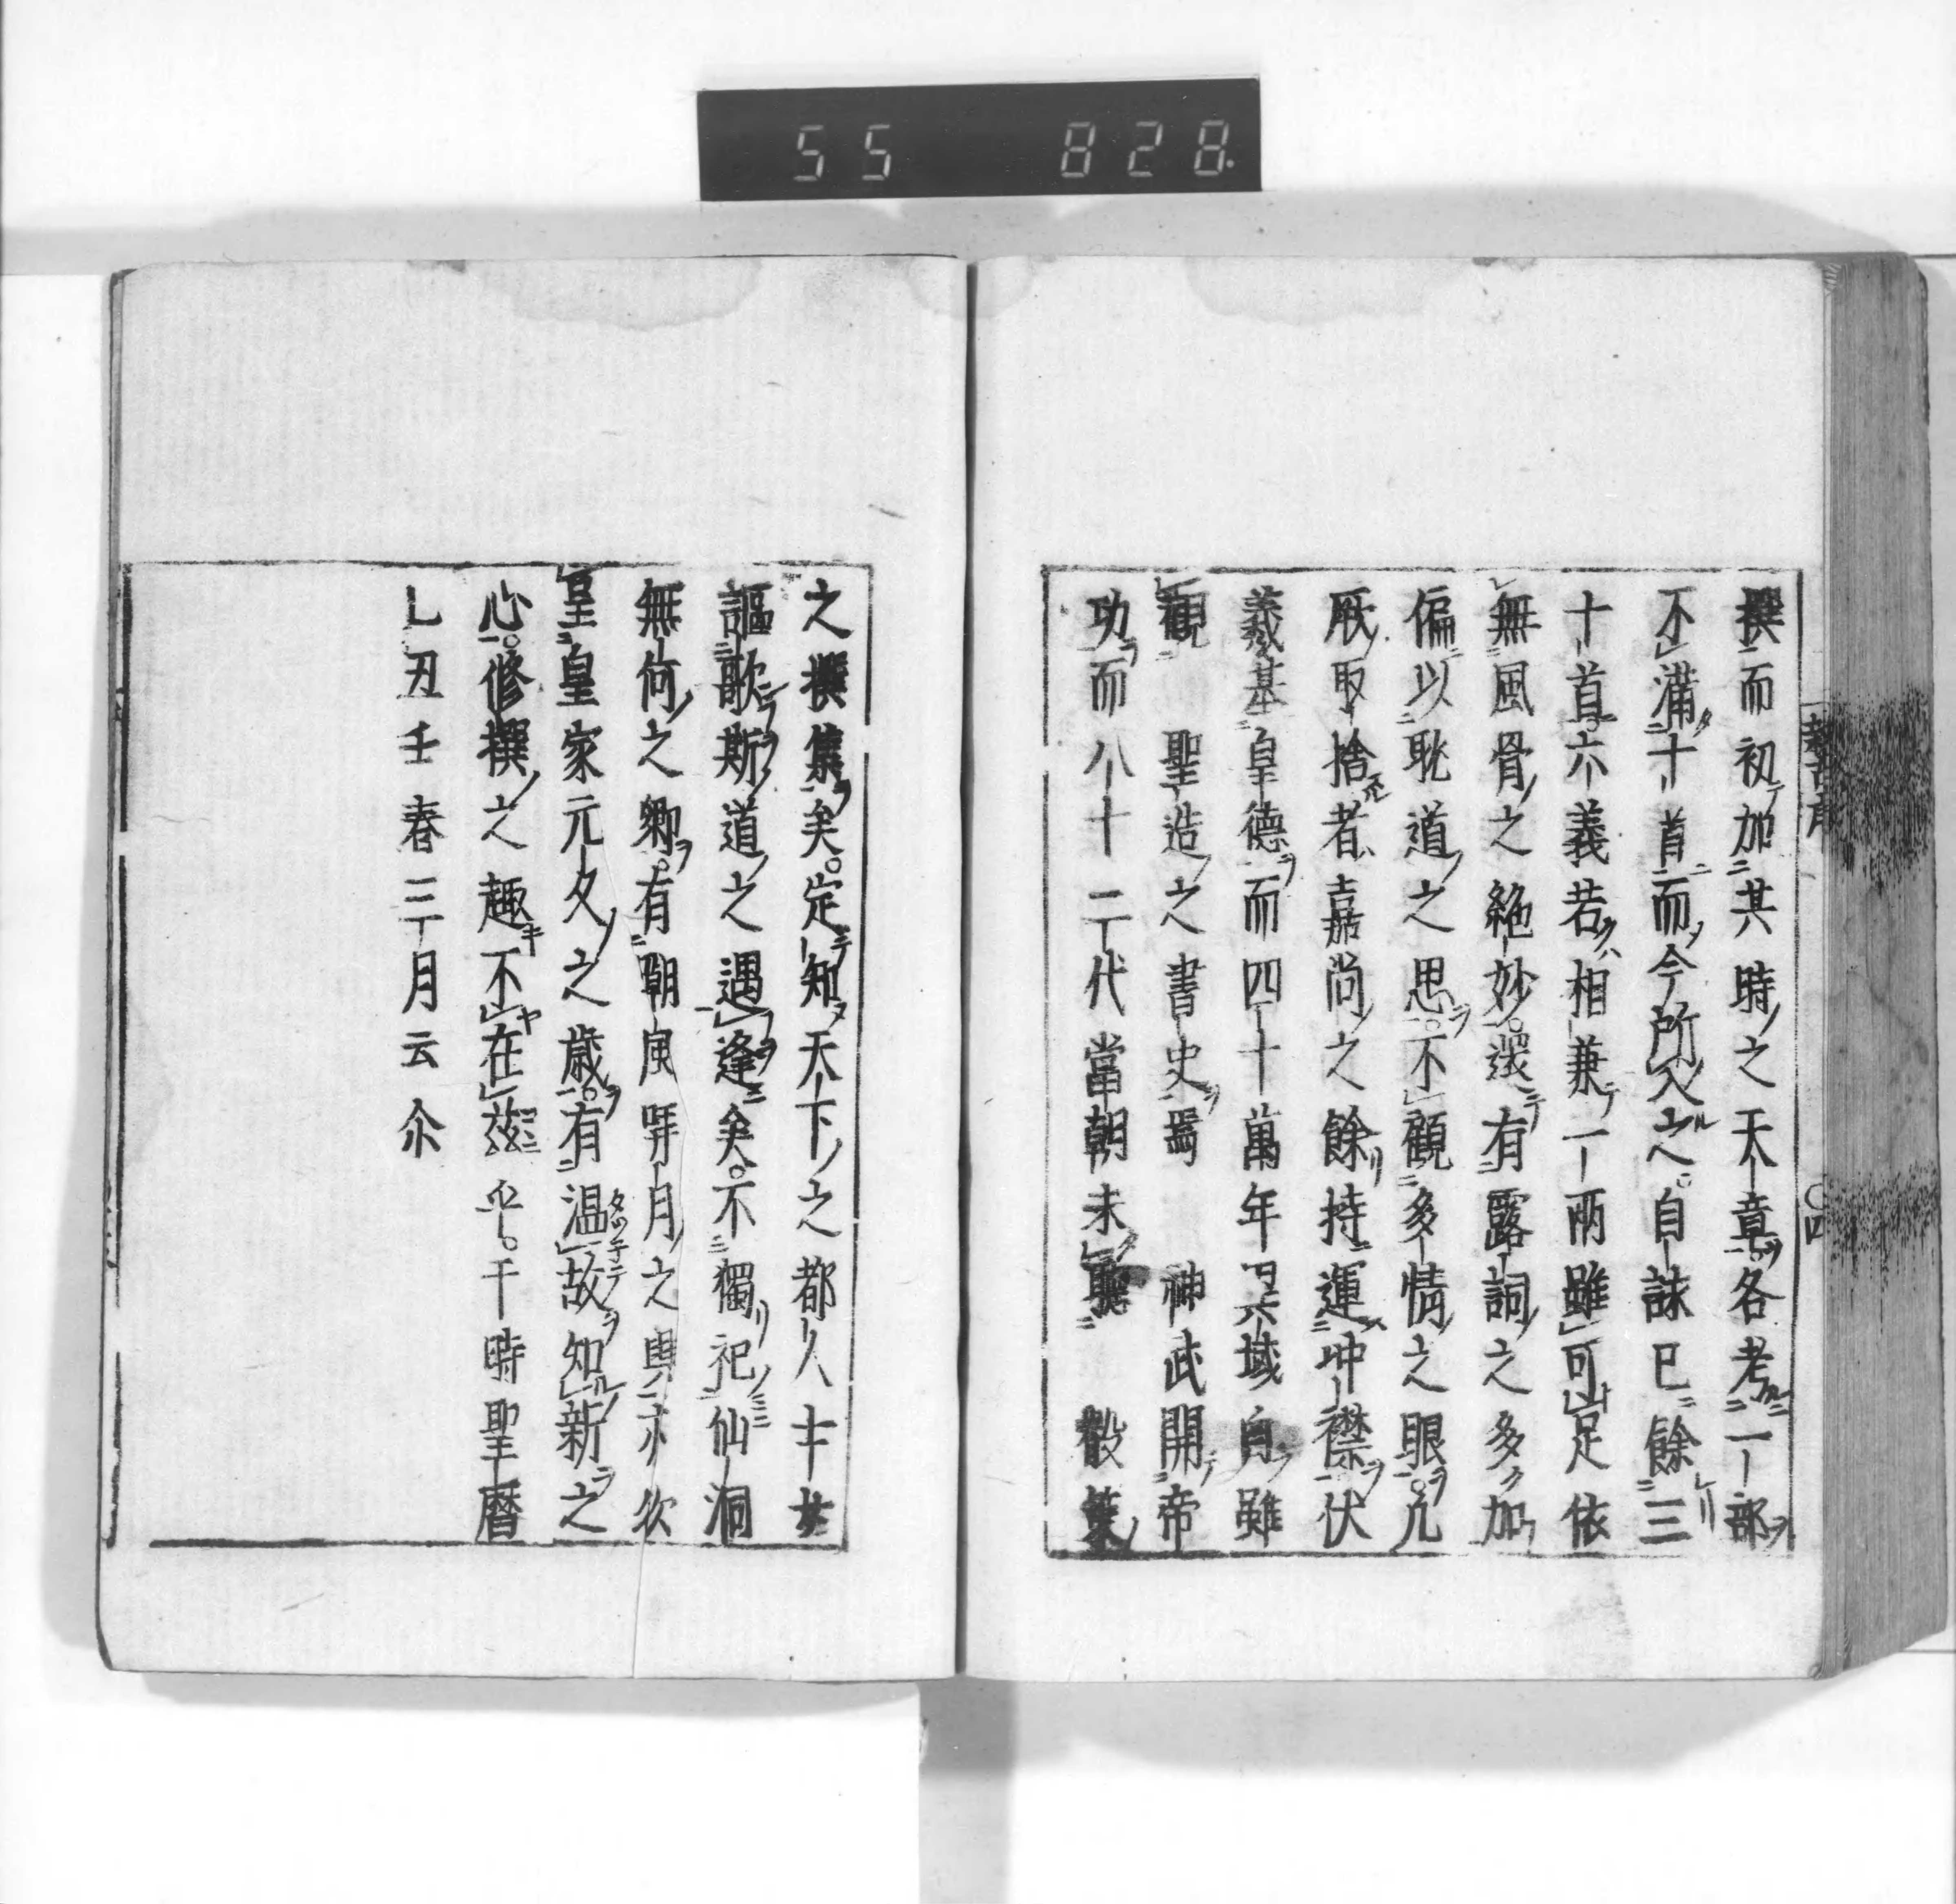 55 828.
撰而初加其時之天章各考一部
不満十首而今所入之自詠已餘三
十首六義若相兼一両雖可足依
無風骨之絶妙還有露詞之多加
偏以耽道之思不顧多情之眼凡
厥取捨者嘉尚之餘持運冲襟伏
羲基皇德而四十萬年異域自雖
観聖造之書史焉神武開帝
功而八十二代當朝未聴叡策
之撰集矣定知天下之都人士女
謳歌斯道之遇逢矣不獨記仙洞
無何之郷有嘲風哢月之興亦欲
呈皇家元久之歳有温故知新之
心修撰之趣不在茲乎于時聖曆
乚丑王春三月云尒